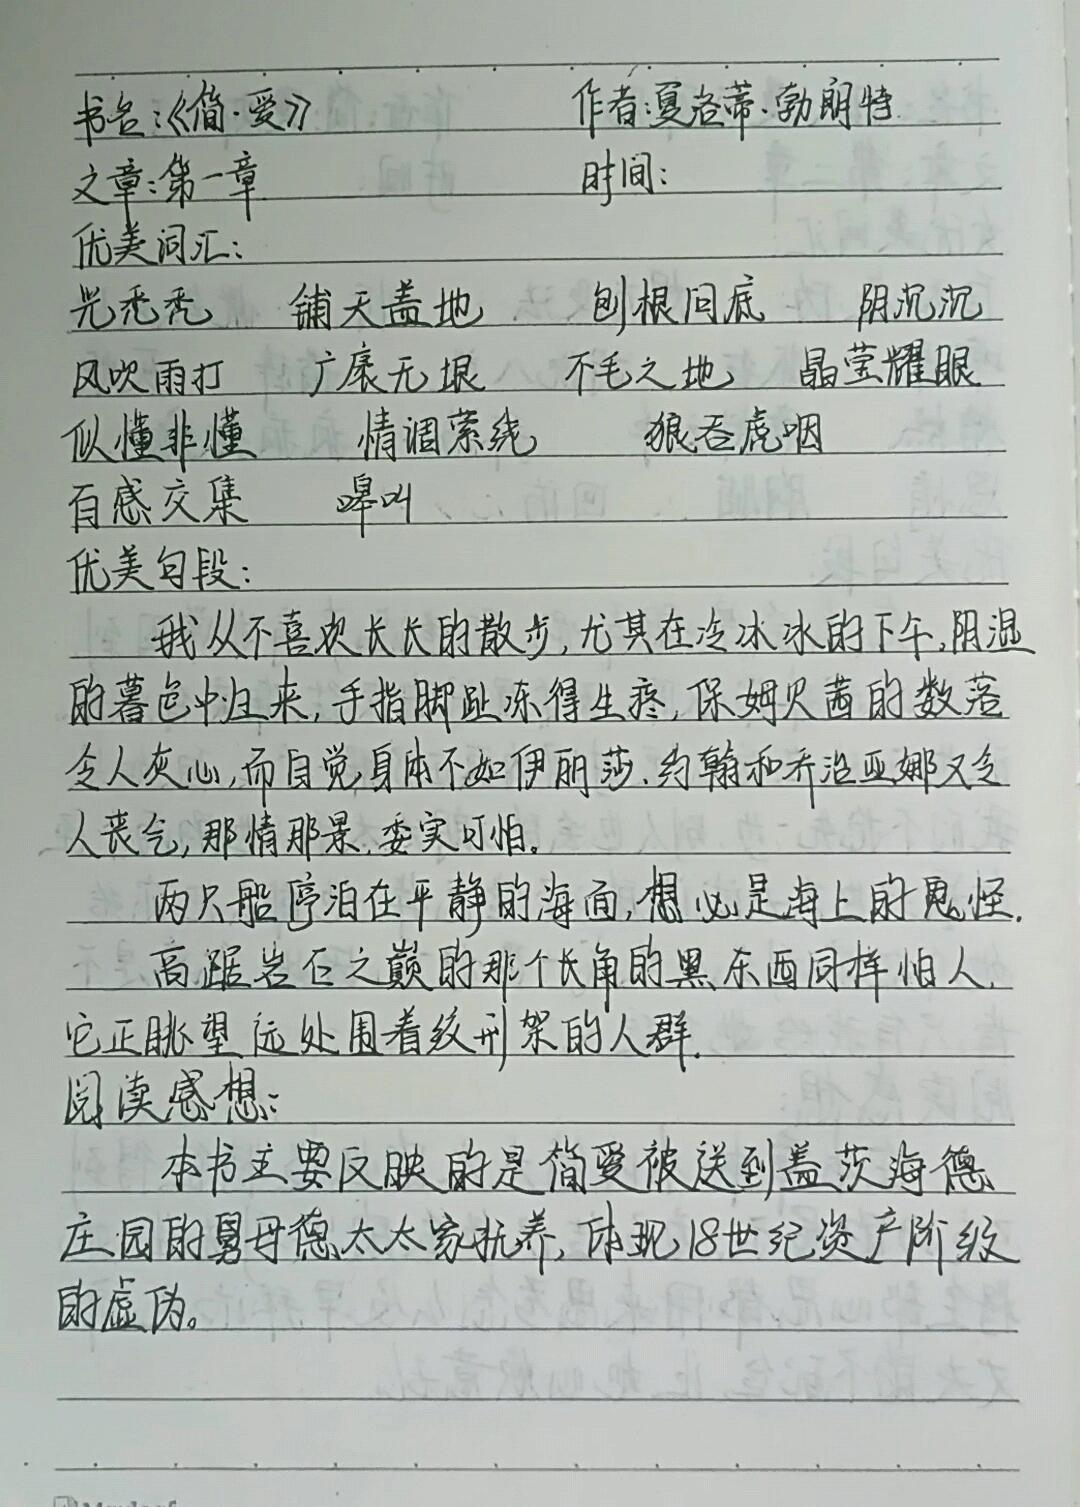 书名:《简·爱》 作者:夏洛蒂·勃朗特
文章:第一章 时间:
优美词汇:
光秃秃 铺天盖地 刨根问底 阴沉沉
风吹雨打 广袤无垠 不毛之地 晶莹耀眼
似懂非懂 情调萦绕 狼吞虎咽
百感交集 嗥叫
优美句段:
我从不喜欢长长的散步,尤其在冷冰冰的下午,阴湿
的暮色中归来,手指脚趾冻得生疼,保姆贝茜的数落
令人灰心,而自觉身体不如伊丽莎、约翰和乔治亚娜又令
人丧气,那情那景,委实可怕。
两只船停泊在平静的海面,想必是海上的鬼怪.
高踞岩石之巅的那个长角的黑东西同样怕人,
它正眺望远处围着绞刑架的人群.
阅读感想:
本书主要反映的是简爱被送到盖茨海德
庄园的舅母德太太家抚养,体现18世纪资产阶级
的虚伪。